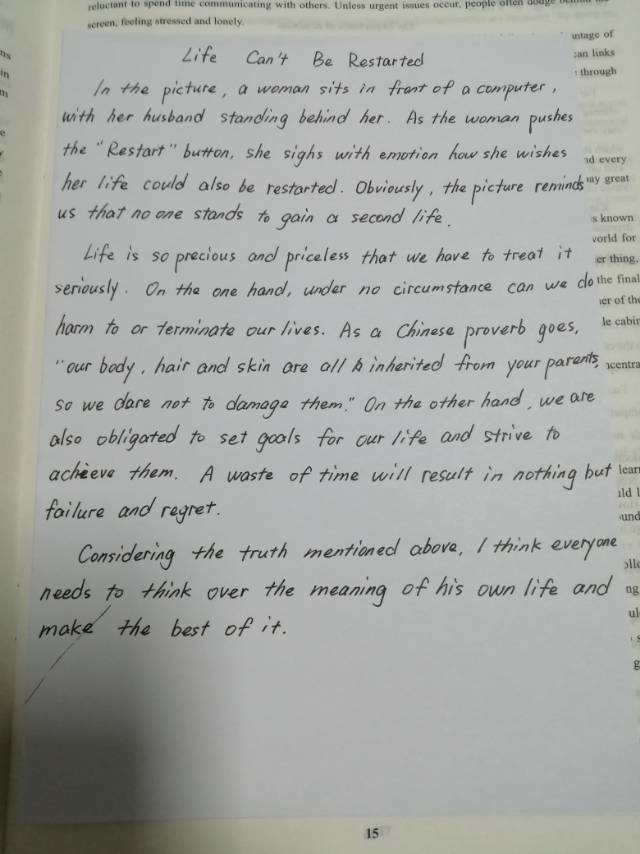 reluctant to spend time communicating with others. Unless urgent issues occur, people often
screen, feeling stressed and lonely.
Life Can't Be Restarted
In the picture, a woman sits in front of a computer,
with her husband standing behind her. As the woman pushes
the "Restart" button, she sighs with emotion how she wishes
her life could also be restarted. Obviously, the picture reminds
us that no one stands to gain a second life.
Life is so precious and priceless that we have to treat it
seriously. On the one hand, under no circumstance can we do
harm to or terminate our lives. As a Chinese proverb goes,
"our body, hair and skin are all inherited from your parents,
so we dare not to damage them." On the other hand, we are
also obligated to set goals for our life and strive to
achieve them. A waste of time will result in nothing but
failure and regret.
Considering the truth mentioned above, I think everyone
needs to think over the meaning of his own life and
make the best of it.
of
links
through
every
great
known
for
thing,
the final
of the
15